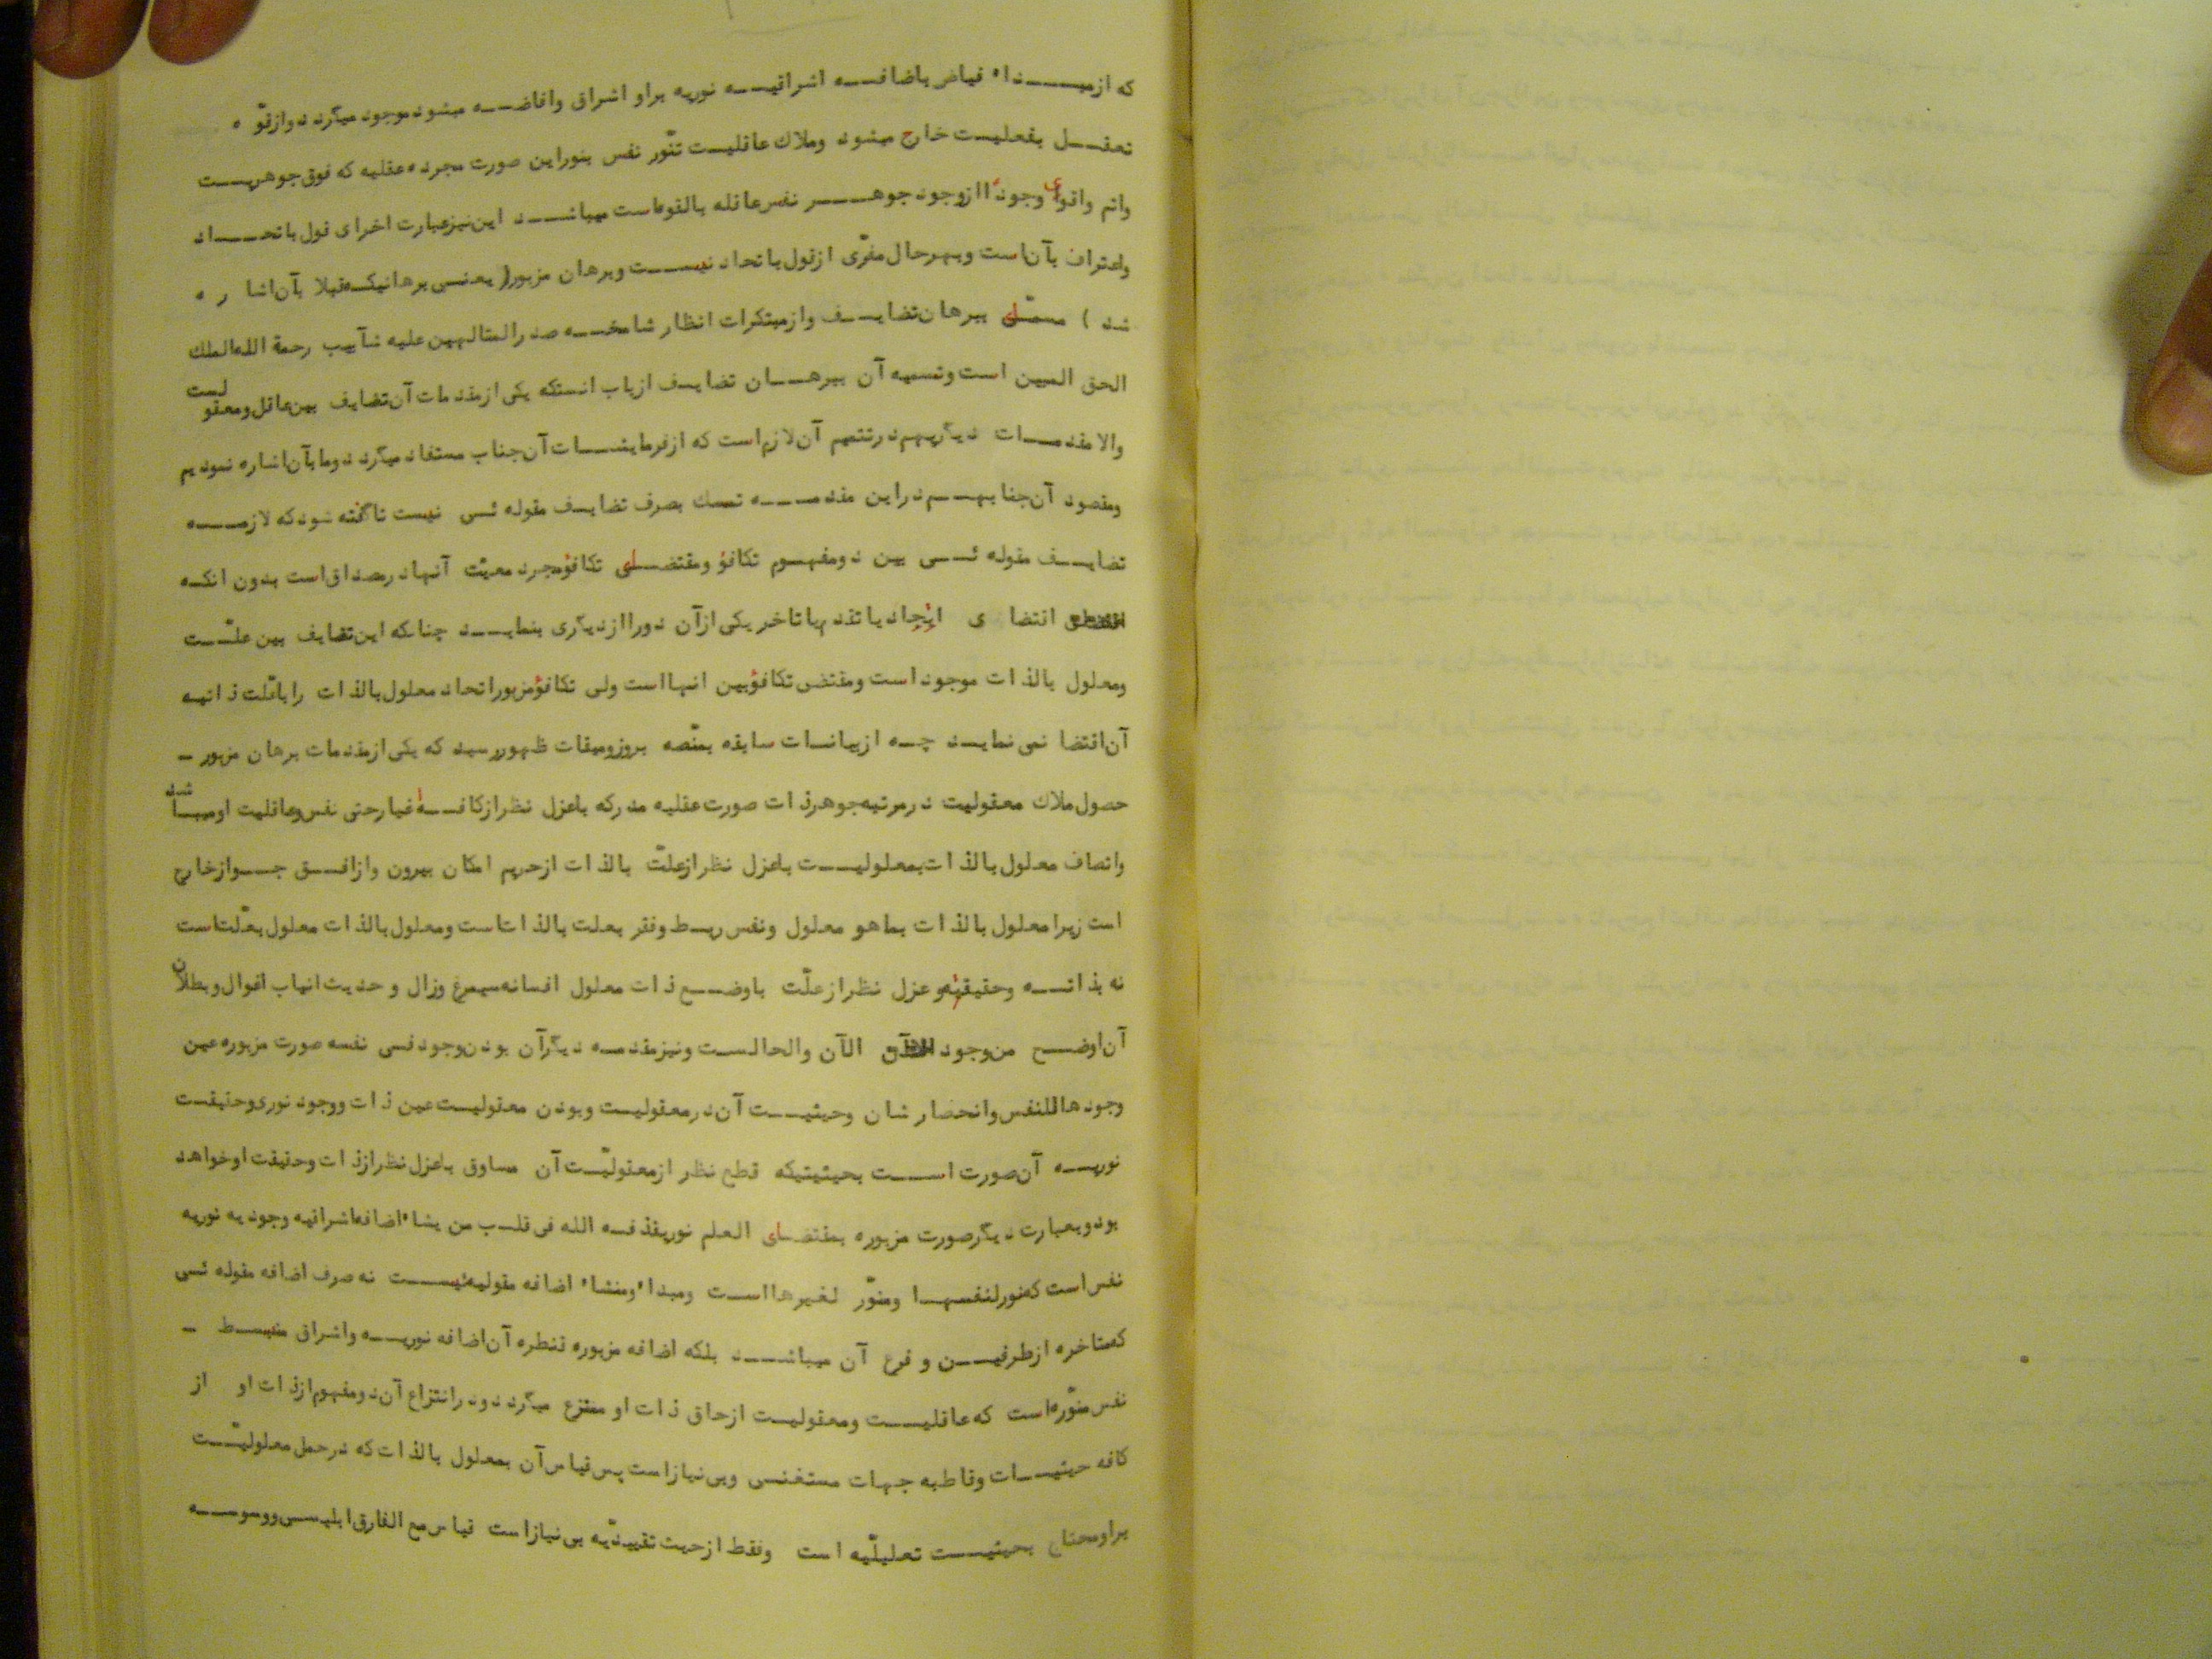 که ازمبداء فیاض باضافه اشراقیه نوریه براو اشراق وافاضه میشود موجود میگردد وازقوّه
تعقل بفعلیت خارج میشود وملاک عاقلیت تنّور نفس بنوراین صورت مجرده عقلیه که فوق جوهریت
واتم واقوای وجودًا ازوجود جوهر نفس عاقله بالقوه است میباشد این نیزعبارت اخرای قول باتحاد
واعتراف بآن است وبهرحال مفرّی ازقول باتحاد نیست وبرهان مزبور( یعنی برهانیکه قبلا بآن اشاره
شد ) مسمّی ببرهان تضایف وازمبتکرات انظار شامخه صدرالمتالهین علیه شآبیب رحمة الله الملک
الحق المبین است وتسمیه آن ببرهان تضایف ازباب انستکه یکی ازمقدمات آن تضایف بین عاقل ومعقولست
والا مقدمات دیگریهم درتتمیم آن لازم است که ازفرمایشات آن جناب مستفاد میگردد ومابآن اشاره نمودیم
ومقصود آن جنابهم دراین مقدمه تمسک بصرف تضایف مقوله ئی نیست تاگفته شود که لازمه
تضایف مقوله ئی بین دومفهوم تکافؤ ومقتضای تکافؤ مجرد معیّت آنها درمصداق است بدون انکه
اقتضای ایجاد یاتقدم یا تاخر یکی ازآن دورا ازدیگری بنماید چنانکه این تضایف بین علّت
ومعلول بالذات موجود است ومقتضی تکافؤ بین انها است ولی تکافؤ مزبور اتحاد معلول بالذات را باعّلت ذاتیه
آن اقتضا نمی نماید چه ازبیانات سابقه بمنّصه بروزومیقات ظهوررسید که یکی ازمقدمات برهان مزبور –
حصول ملاک معقولیت درمرتبه جوهرذات صورت عقلیه مدرکه باعزل نظرازکافهٔ اغیارحتی نفس وعاقلیت اومیباشد
واتصاف معلول بالذات بمعلولیت باعزل نظرازعلتّ بالذات ازحریم امکان بیرون وازافق جوازخارج
است زیرا معلول بالذات بماهو معلول ونفس ربط وفقر بعلت بالذات است ومعلول بالذات معلول بعّلت است
نه بذاته وحقیقته وعزل نظرازعلّت باوضع ذات معلول افسانه سیمرغ وزال و حدیث انیاب اغوال وبطلان
آن اوضح من وجود الآن والحالست ونیزمقدمه دیگرآن بودن وجود فی نفسه صورت مزبوره عین
وجودها للنفس وانحصار شان وحیثیت آن درمعقولیت وبودن معقولیت عین ذات ووجود نوری وحقیقت
نوریه آن صورت است بحیثیتیکه قطع نظر ازمعقولیّت آن مساوق باعزل نظرازذات وحقیقت اوخواهد
بود وبعبارت دیگرصورت مزبوره بمقتضای العلم نوریقذفه الله فی قلب من یشاء اضافه اشراقیه وجودیه نوریه
نفس است که نورلنفسها ومنّور لغیرها است ومبداء ومنشاء اضافه مقولیه نیست نه صرف اضافه مقوله ئی
که متاخره ازطرفین و فرع آن میباشد بلکه اضافه مزبوره قنطره آن اضافه نوریه واشراق منبسط –
نفس منّوره است که عاقلیت ومعقولیت ازحاق ذات او منتزع میگردد ودرانتزاع آن دومفهوم ازذات او از
کافه حیثیات وقاطبه جهات مستغنی وبی نیازاست پس قیاس آن بمعلول بالذات که درحمل معلولیّت
براومحتاج بحیثیت تعلیلیّه است وفقط ازحیث تقییدیّه بی نیازاست قیاس مع الفارق ابلیس ووسوسه